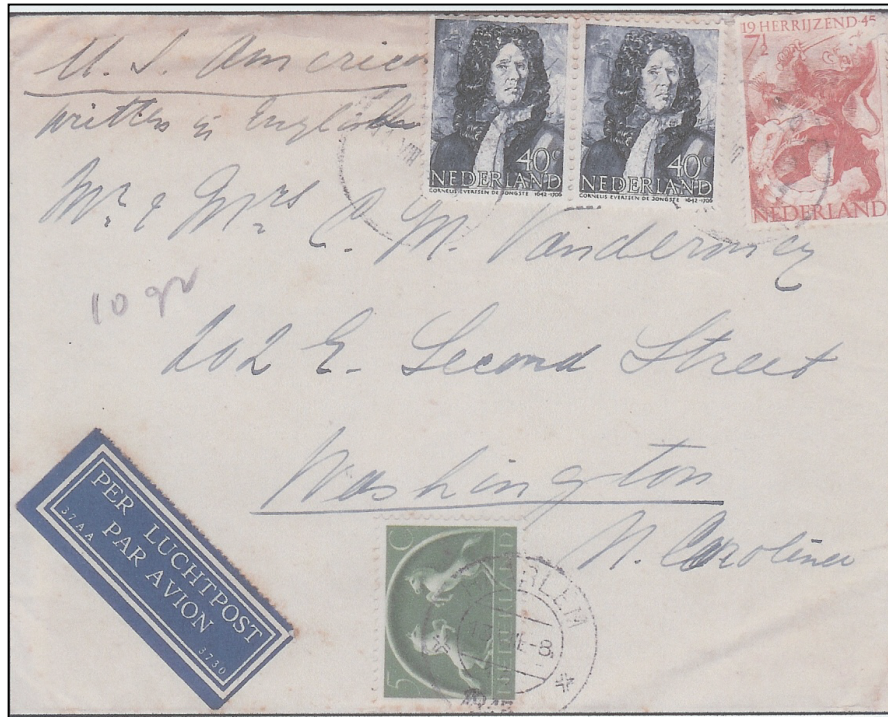 U. S. America
written in English
Mr. & Mrs C. M.
10 gr
202 E. Second Street
Washington
N. Carolina
40c
NEDERLAND
CORNELIS EVERTSEN DE JONGSTE 1642-1706
40c
NEDERLAND
CORNELIS EVERTSEN DE JONGSTE 1642-1706
19 HERRIJZEND 45
7½
NEDERLAND
PER LUCHTPOST
PAR AVION
37 A A
3730
5 C
NEDERLAND
HAARLEM
1945